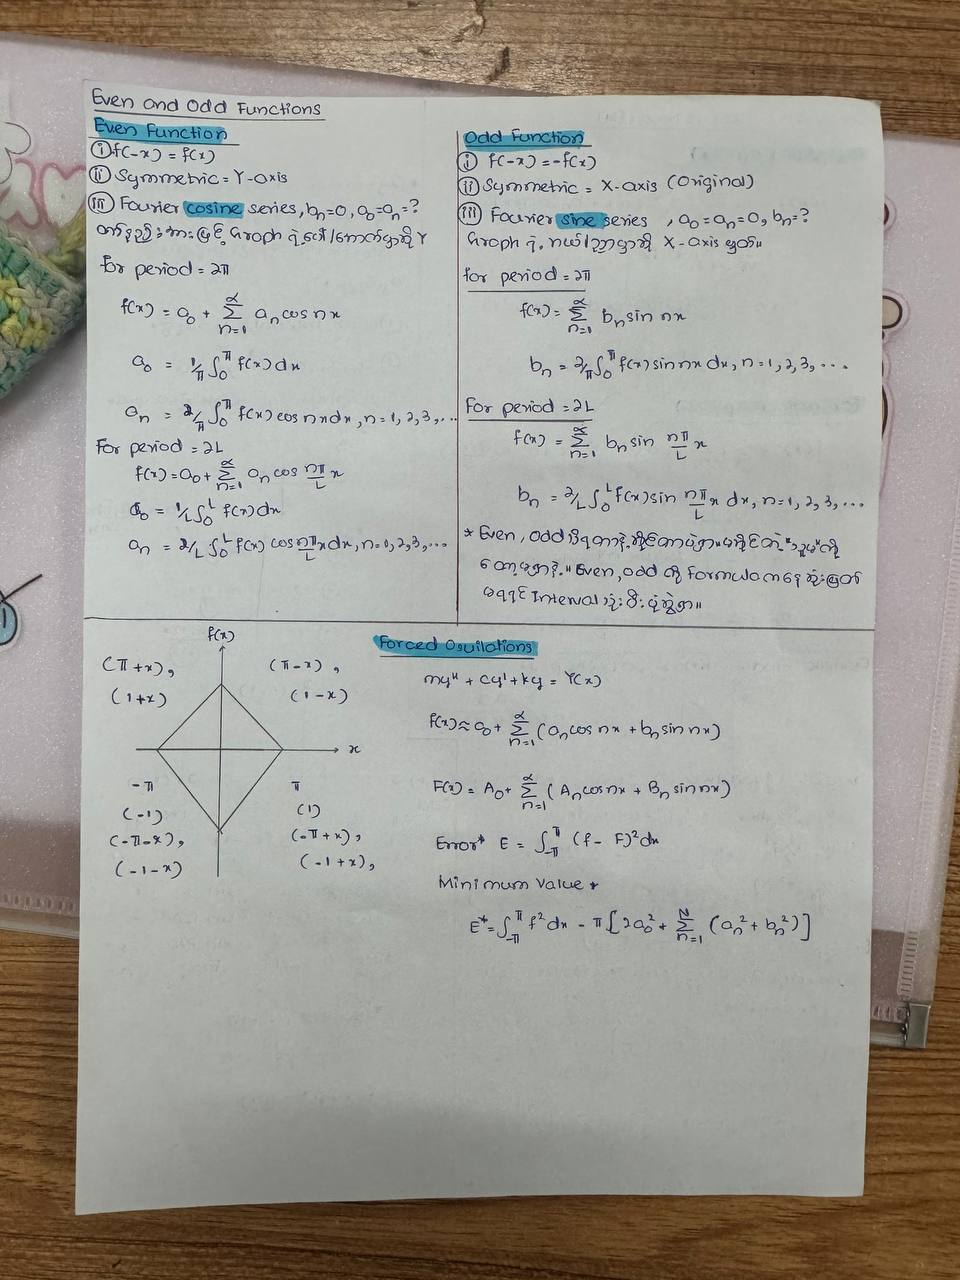 Even and Odd Functions
Even Function
(i) f(-x) = f(x)
(ii) Symmetric = Y-axis
(iii) Fourier cosine series, bn=0, a₀=an=?
Graph ရဲ့ Y
for period = 2π
f(x) = a₀ + ∑_{n=1}^{∝} an cos nx
a₀ = 1/π ∫₀^π f(x) dx
an = 2/π ∫₀^π f(x) cos nx dx, n=1, 2, 3, ...
For period = 2L
f(x) = a₀ + ∑_{n=1}^{∝} an cos nπ/L x
a₀ = 1/L ∫₀^L f(x) dx
an = 2/L ∫₀^L f(x) cos nπ/L x dx, n=1, 2, 3, ...
Odd Function
(i) f(-x) = -f(x)
(ii) Symmetric = X-axis (Original)
(iii) Fourier sine series, a₀=an=0, bn=?
Graph ရဲ့ X-axis
for period = 2π
f(x) = ∑_{n=1}^{∝} bn sin nx
bn = 2/π ∫₀^π f(x) sin nx dx, n=1, 2, 3, ...
For period = 2L
f(x) = ∑_{n=1}^{∝} bn sin nπ/L x
bn = 2/L ∫₀^L f(x) sin nπ/L x dx, n=1, 2, 3, ...
* Even, odd
Even, odd ကို formula ကနေ
Interval
f(x)
(π+x), (π-x),
(1+x) (1-x)
x
-π π
(-1) (1)
(-π-x), (-π+x),
(-1-x) (-1+x),
Forced Osuilations
my" + cy' + ky = r(x)
f(x) ≈ a₀ + ∑_{n=1}^{∝} (an cos nx + bn sin nx)
F(x) = A₀ + ∑_{n=1}^{∝} (An cos nx + Bn sin nx)
Error* E = ∫_{-π}^{π} (f - F)² dx
Minimum Value *
E* = ∫_{-π}^{π} f² dx - π [2a₀² + ∑_{n=1}^{N} (an² + bn²)]